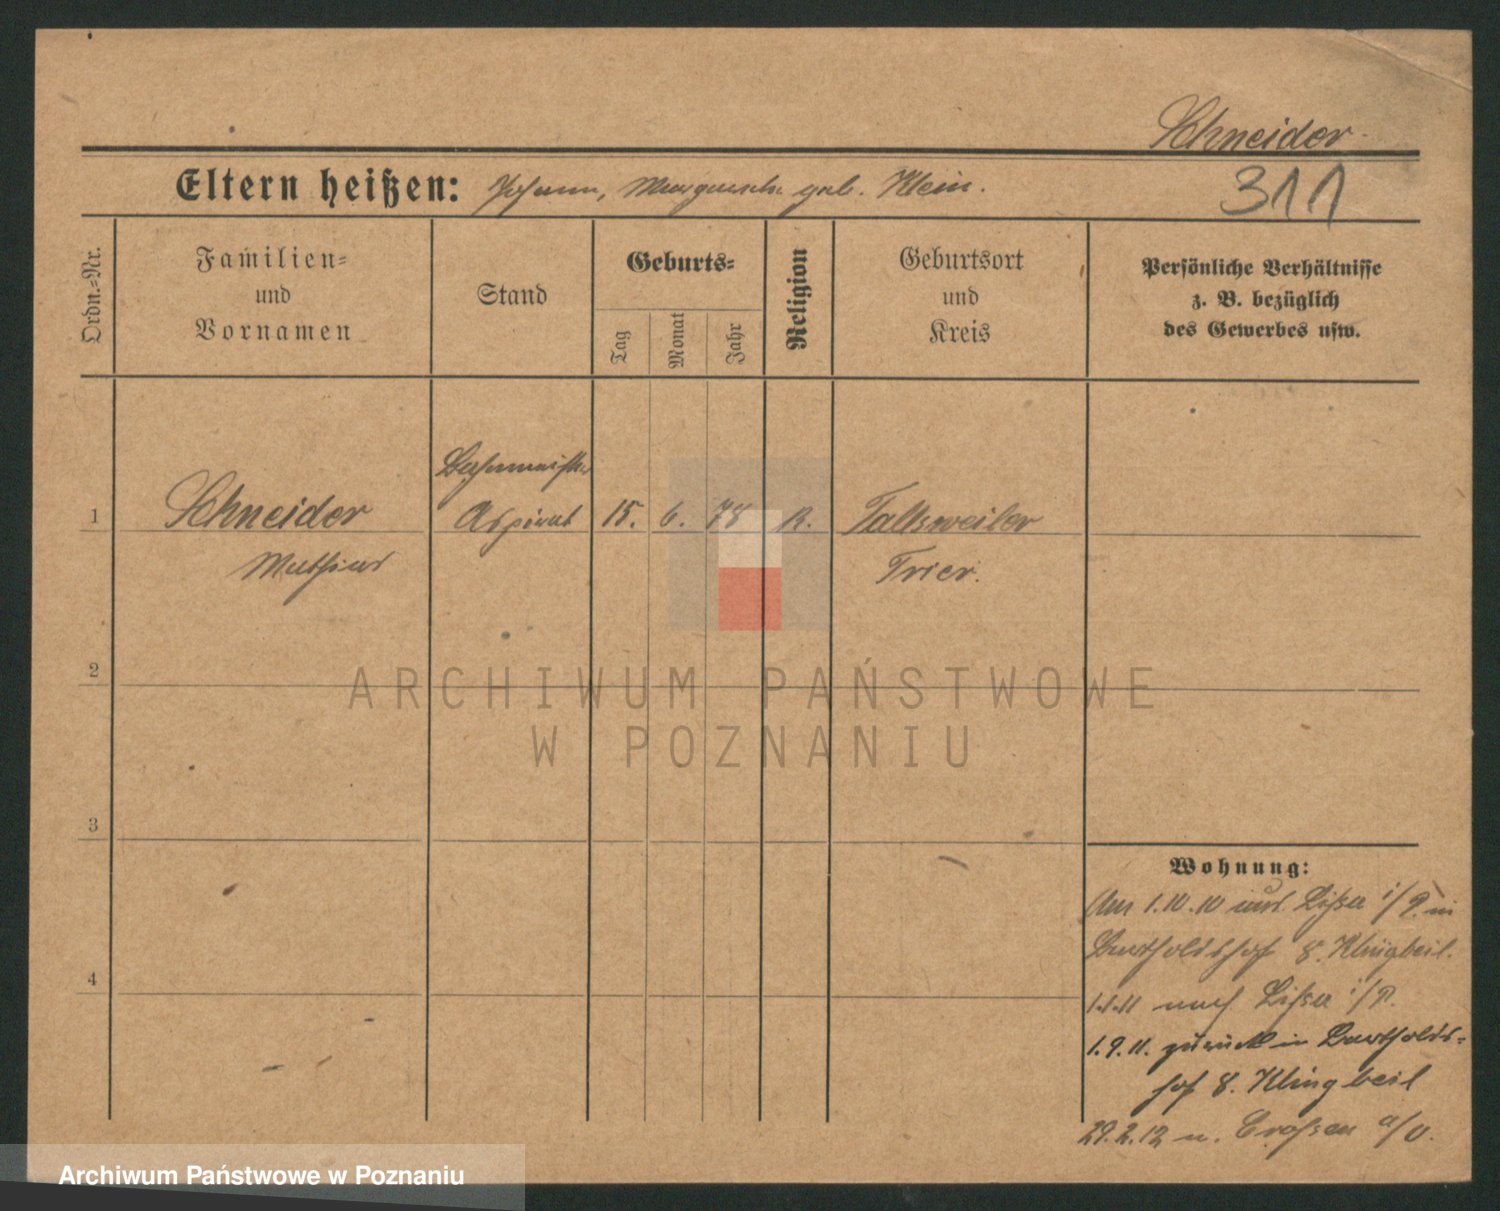 Schneider
Eltern heißen: Johann, Margareth geb. Klein.
311
Ordn.-Nr.
Familien-
und
Vornamen
Stand
Geburts-
Tag
Monat
Jahr
Religion
Geburtsort
und
Kreis
Persönliche Verhältnisse
z. B. bezüglich
des Gewerbes usw.
Bahnmeister
1 Schneider Aspirant 15. 6. 78 R. Talksweiler
Mathias Trier.
2
ARCHIWUM PAŃSTWOWE
W POZNANIU
3
4
Wohnung:
Am 1.10.10 aus Lissa i/P. in
Bartholdshof 8. Klingbeil.
1.1.11 nach Lissa i/P.
1.9.11. zurück in Bartholds-
hof 8. Klingbeil
29.2.12 n. Crossen a/O.
Archiwum Państwowe w Poznaniu